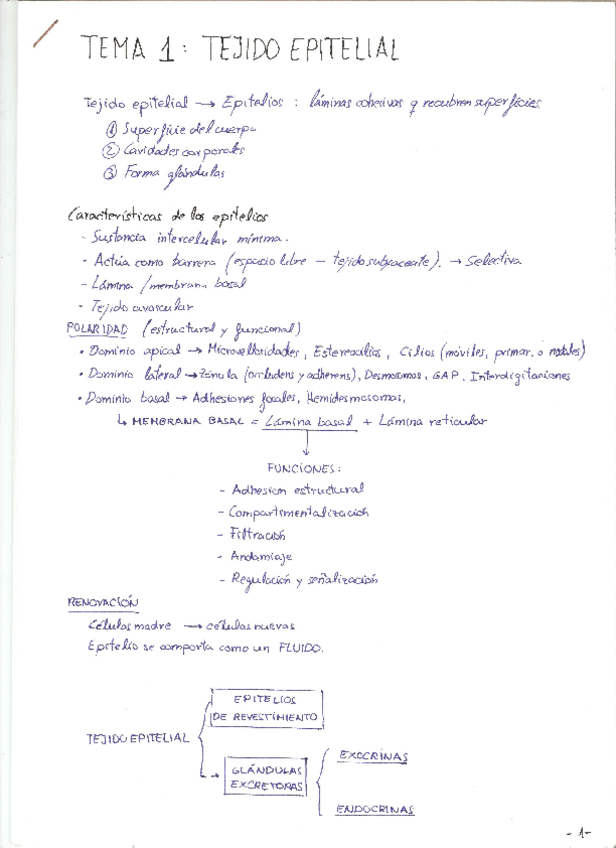 TEMA 1: TEJIDO EPITELIAL
Tejido epitelial → Epitelios : láminas cohesivas q recubren superficies
① Superficie del cuerpo
② Cavidades corporales
③ Forma glándulas
Características de los epitelios
- Sustancia intercelular mínima.
- Actúa como barrera (espacio libre - tejido subyacente). → Selectiva
- Lámina / membrana basal
- Tejido avascular
POLARIDAD (estructural y funcional)
• Dominio apical → Microvellosidades, Estereocilios, Cilios (móviles, primar. o nodales)
• Dominio lateral → Zónula (occludens y adherens), Desmosomas, GAP, Interdigitaciones
• Dominio basal → Adhesiones focales, Hemidesmosomas,
↳ MEMBRANA BASAL = Lámina basal + Lámina reticular
FUNCIONES:
- Adhesion estructural
- Compartimentalización
- Filtración
- Andamiaje
- Regulación y señalización
RENOVACIÓN
Células madre → células nuevas
Epitelio se comporta como un FLUIDO.
EPITELIOS
DE REVESTIMIENTO
TEJIDO EPITELIAL
EXOCRINAS
GLÁNDULAS
EXCRETORAS
ENDOCRINAS
- 1 -